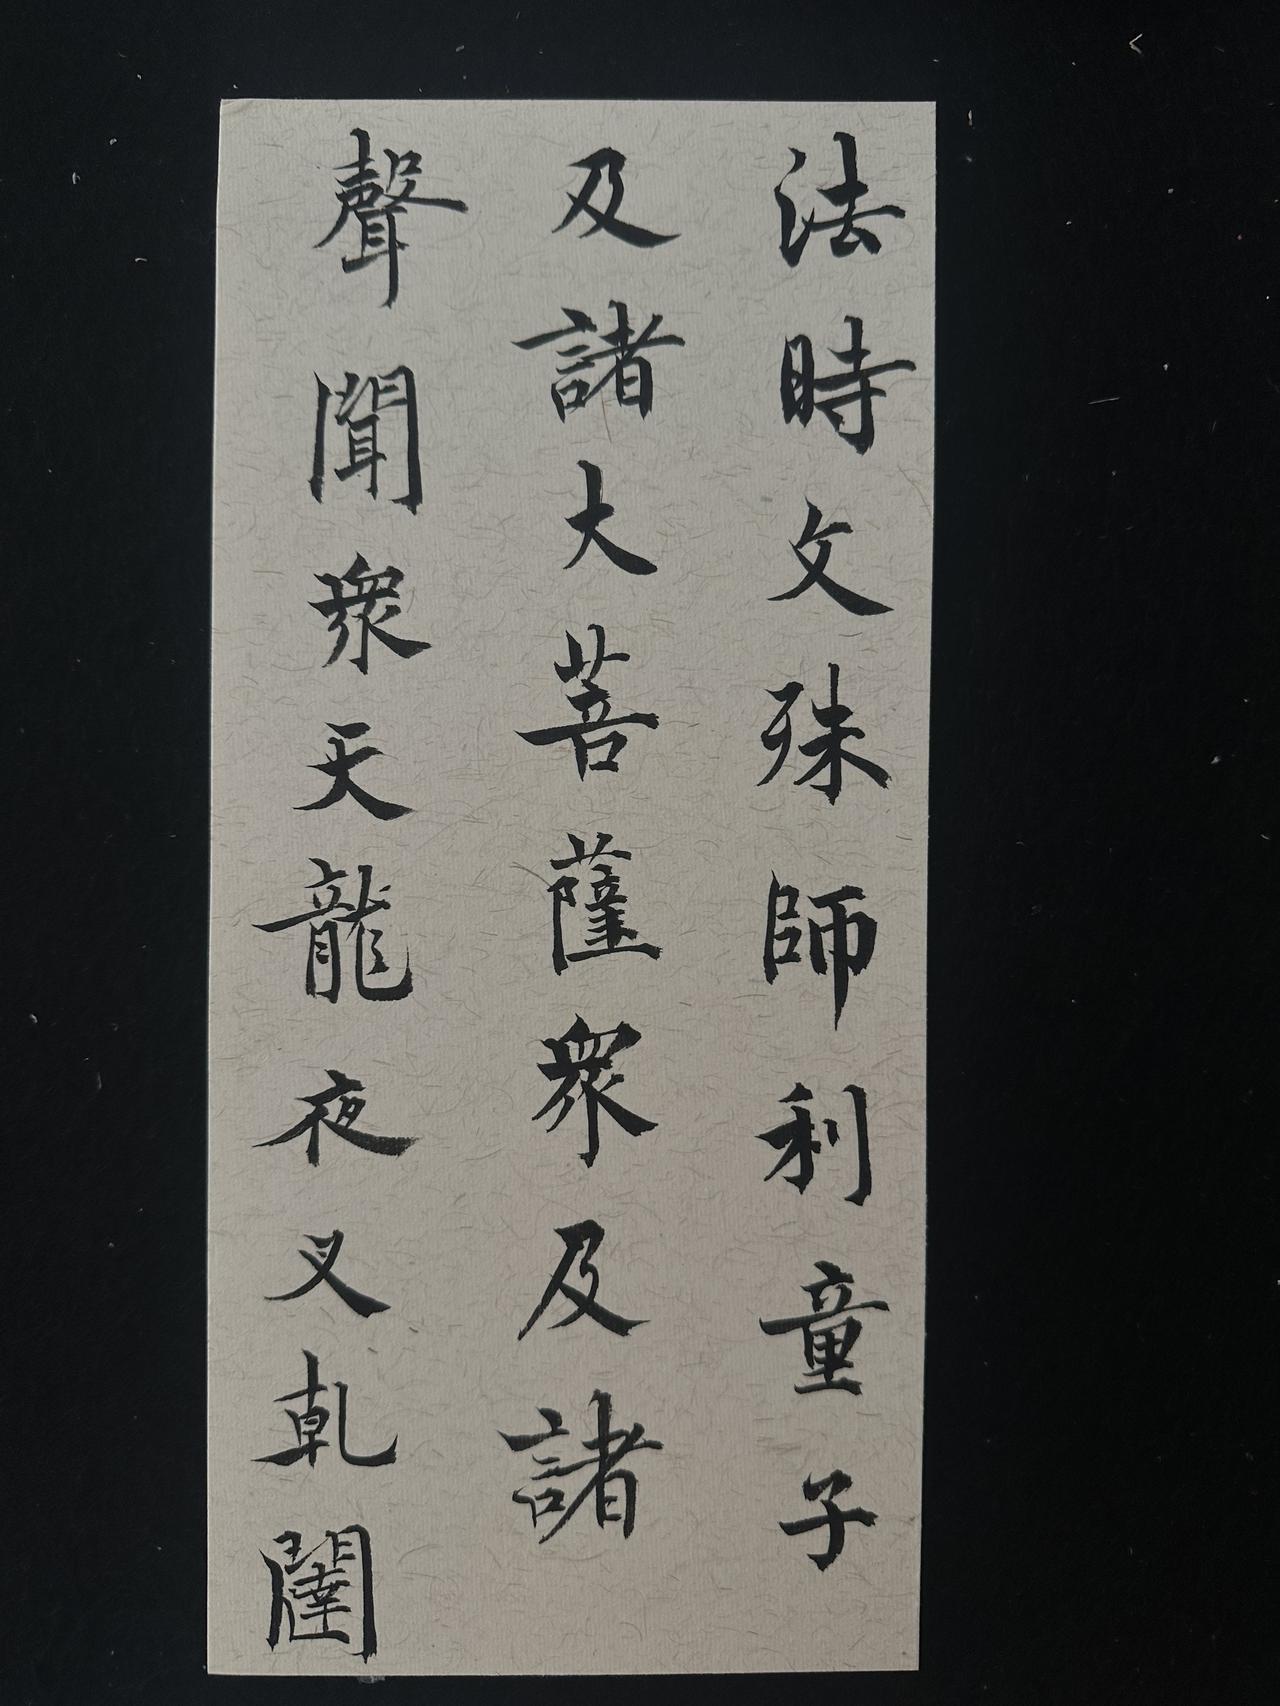 法時文殊師利童子
及諸大菩薩衆及諸
聲聞衆天龍夜叉乾闥